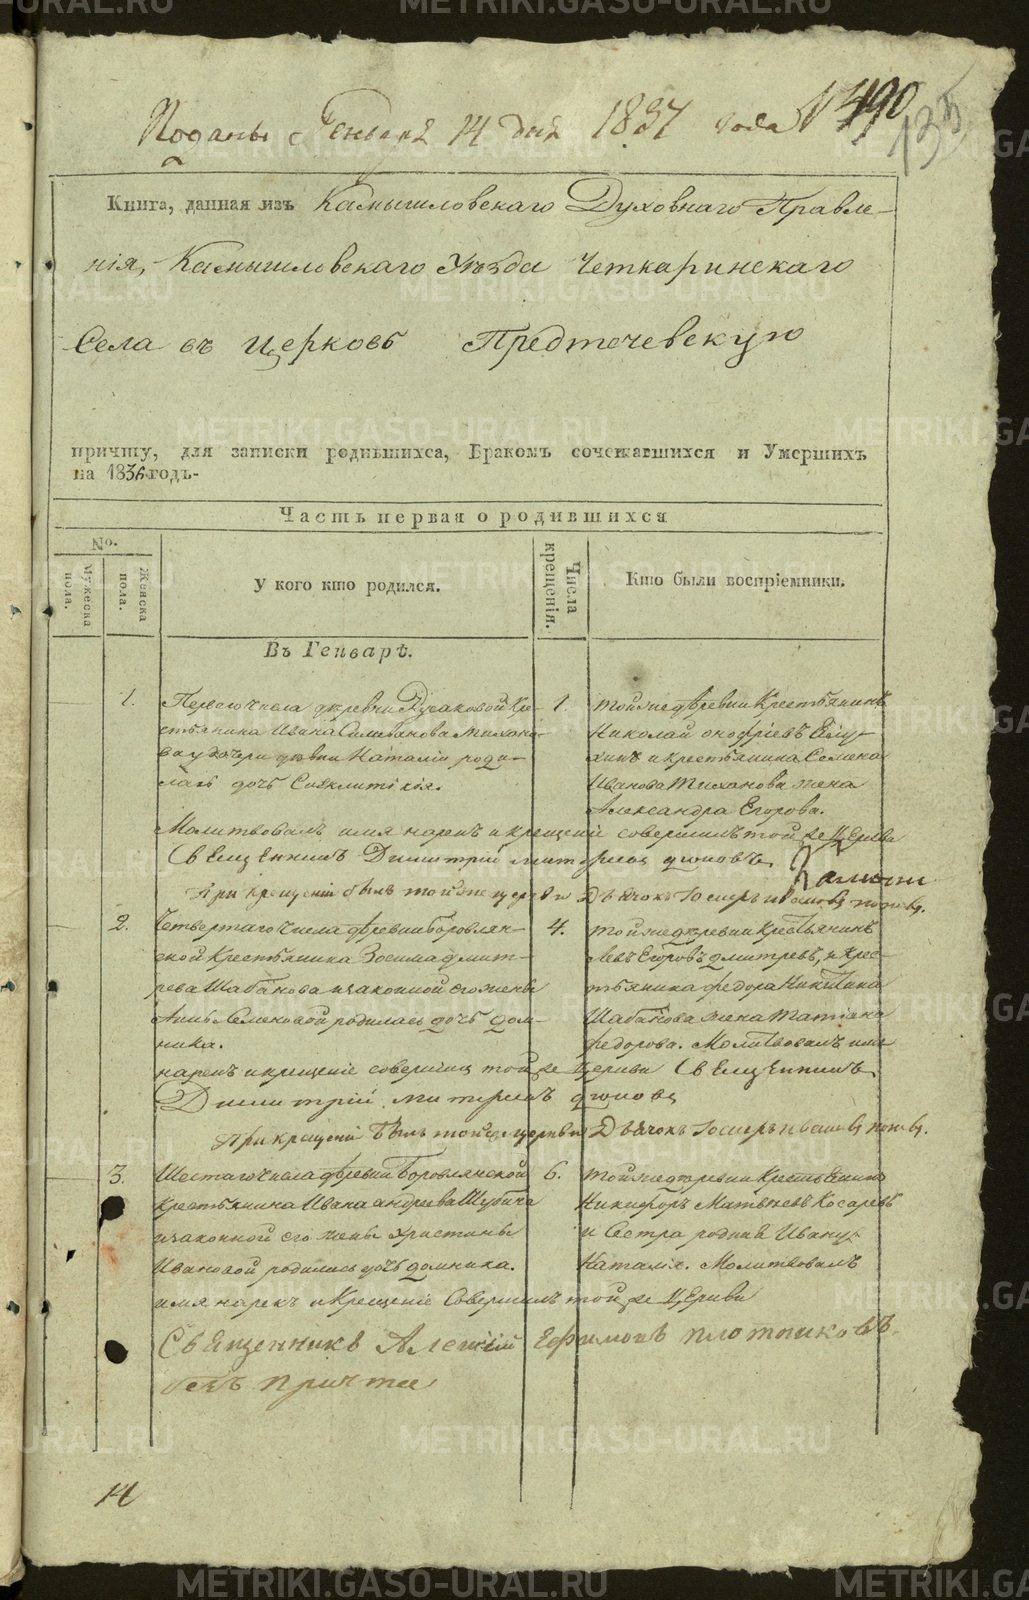 Поданы Генваря 14 дня 1837 года № 490
135
Книга, данная изъ Камышловскаго Духовнаго Правле-
нія, Камышловскаго Уѣзда Четкаринскаго
Села въ церковь Предтечевскую
причту, для записки родившихся, Бракомъ сочетавшихся и Умершихъ
на 1836 годъ-
Часть первая о родившихся
No.
Мужеска пола.
Женска пола.
У кого кто родился.
Числа крещенія.
Кто были воспріемники.
Въ Генварѣ.
1.
Перваго числа деревни Русаковой Кре-
стьянина Ивана Силивanова Тихано-
ва у дочери девки Наталіи роди-
лась дочь Синклитикія.
1.
Той же деревни Крестьянинъ
Николай Онофріевъ
и крестьянина Семена
Иванова Тиханова жена
Александра Егорова.
Молитвовалъ имя нарекъ и крещеніе совершилъ той же Церкви
Священникъ Димитрій
При крещеніи былъ той же церкви Дьячокъ Иосифъ Ивановъ Поповъ.
2.
Четвертаго числа деревни Боровлян-
ской Крестьянина Зосима Дмит-
рева Шабанова и законной его жены
Анны Семеновой родилась дочь Дом-
ника.
4.
Той же деревни Крестьянинъ
Левъ Егоровъ Дмитревъ, и крес-
тьянина Федора Никитина
Шабанова жена Татіана
Федорова. Молитвовалъ имя
нарекъ и крещеніе совершилъ той же Церкви Священникъ
Димитрій
При крещеніи былъ той же церкви Дьячокъ Иосифъ Ивановъ Поповъ.
3.
Шестаго числа деревни Боровлянской
Крестьянина Ивана Андреева Шубина
и законной его жены Христины
Ивановой родилась дочь Домника.
6.
Той же деревни Крестьянинъ
Никифоръ Матвѣевъ Косаревъ
и Сестра родная Ивану
Наталія. Молитвовалъ
имя нарекъ и Крещеніе Совершилъ той же Церкви
Священникъ Алексій Ефимовъ Плотниковъ
безъ причта
14
METRIKI.GASO-URAL.RU